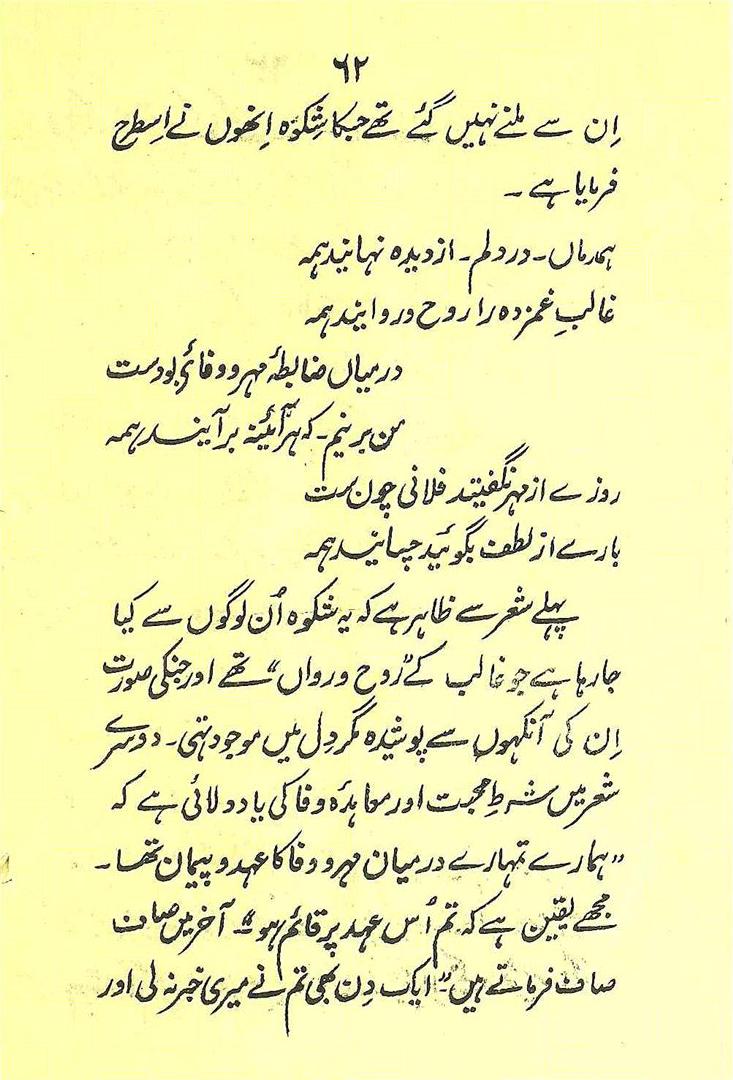 ۶۲
اِن سے ملنے نہیں گئے تھے جسکا شِکوَہ اِنھوں نے اِسطرح
فرمایا ہے ۔
ہمدماں ۔ در دلم ۔ از دیدہ نہانیند ہمہ
غالبِ غمزدہ را روح و روانیند ہمہ
درمیاں ضابطۂ مہر و وفائی بودست
من برنیم ۔ کہ ہر آئینہ بر آنیند ہمہ
روزے از مہر نگفیتد فلانی چون ست
بارے از لطف بگوئید چسانیند ہمہ
پہلے شعر سے ظاہر ہے کہ یہ شکوہ اُن لوگوں سے کیا
جا رہا ہے جو غالب کے ”روح و رواں“ تھے اور جنکی صورت
اِن کی آنکھوں سے پوشیدہ مگر دِل میں موجود تہی ۔ دوسرے
شعر میں شرطِ محبت اور معاہدۂ وفا کی یاد دلائی ہے کہ
”ہمارے تمہارے درمیان مہر و وفا کا عہد و پیمان تھا ۔
مجھے یقین ہے کہ تم اُس عہد پر قائم ہو“ ۔ آخر میں صاف
صاف فرماتے ہیں ”ایک دِن بھی تم نے میری خبر نہ لی اور